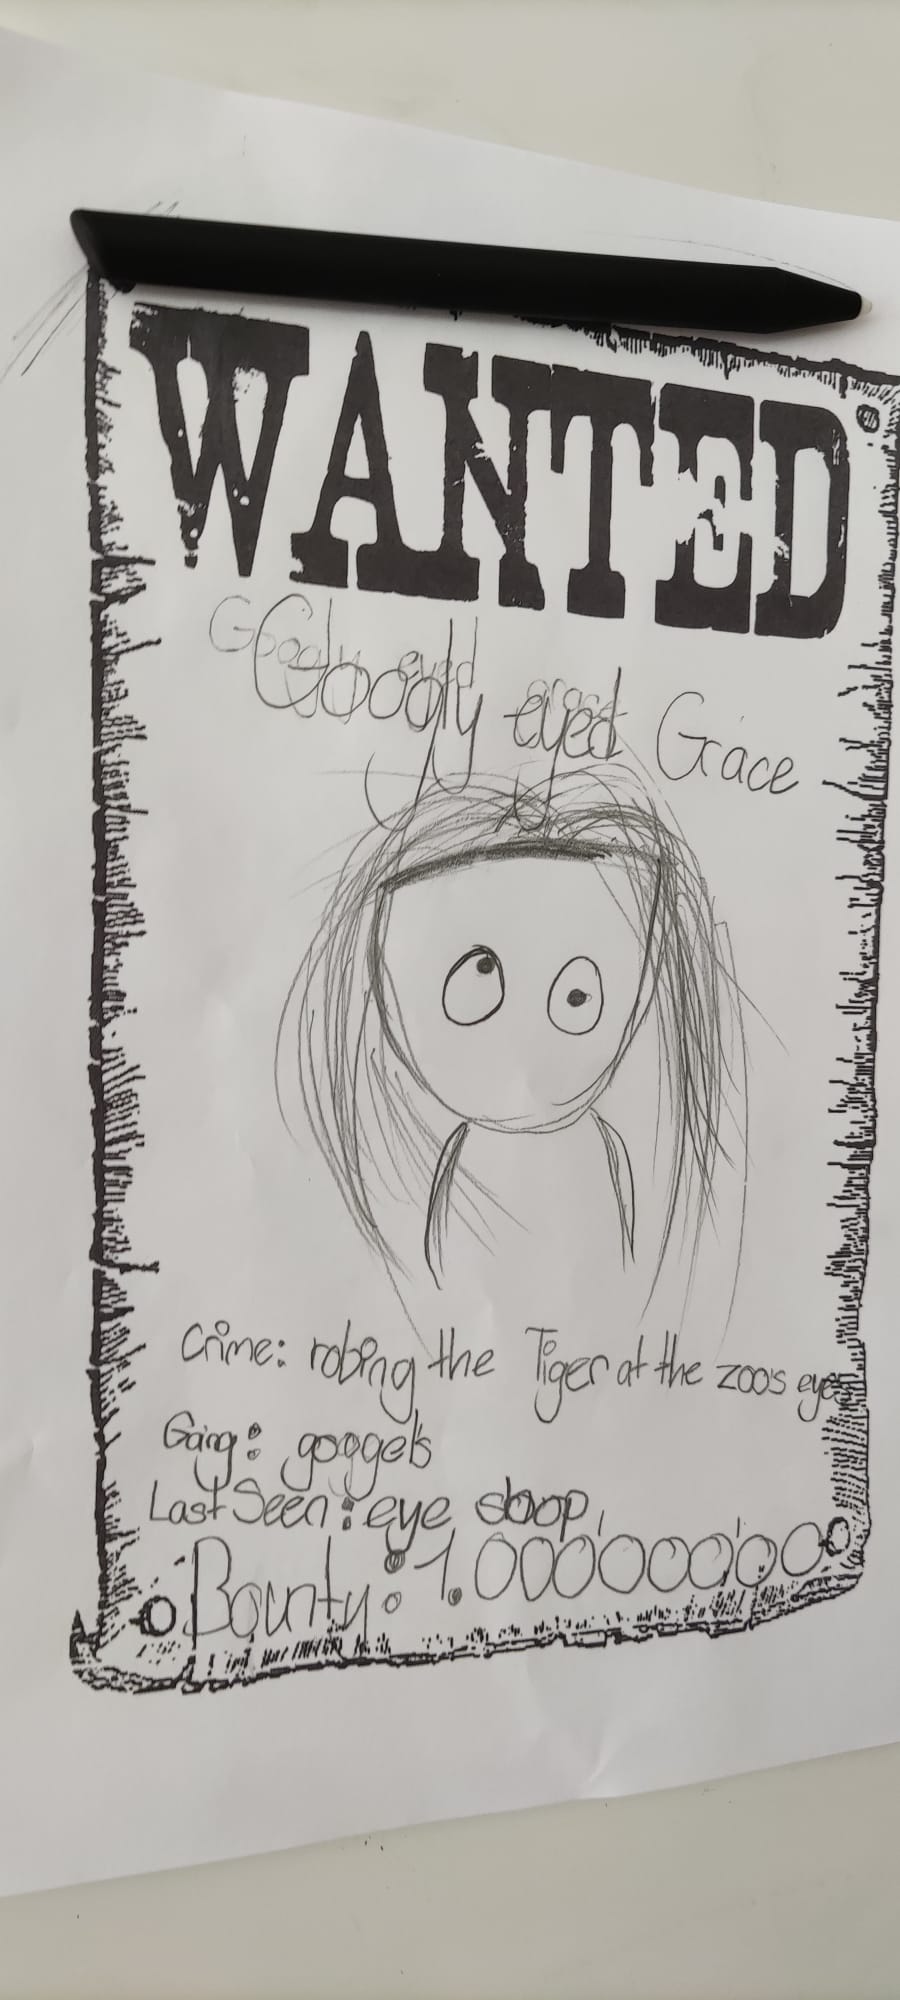 WANTED
Googly eyed Grace
Crime: robing the Tiger at the zoo's eyes
Gang: goggels
Last Seen: eye shop
Bounty: 1.000000000